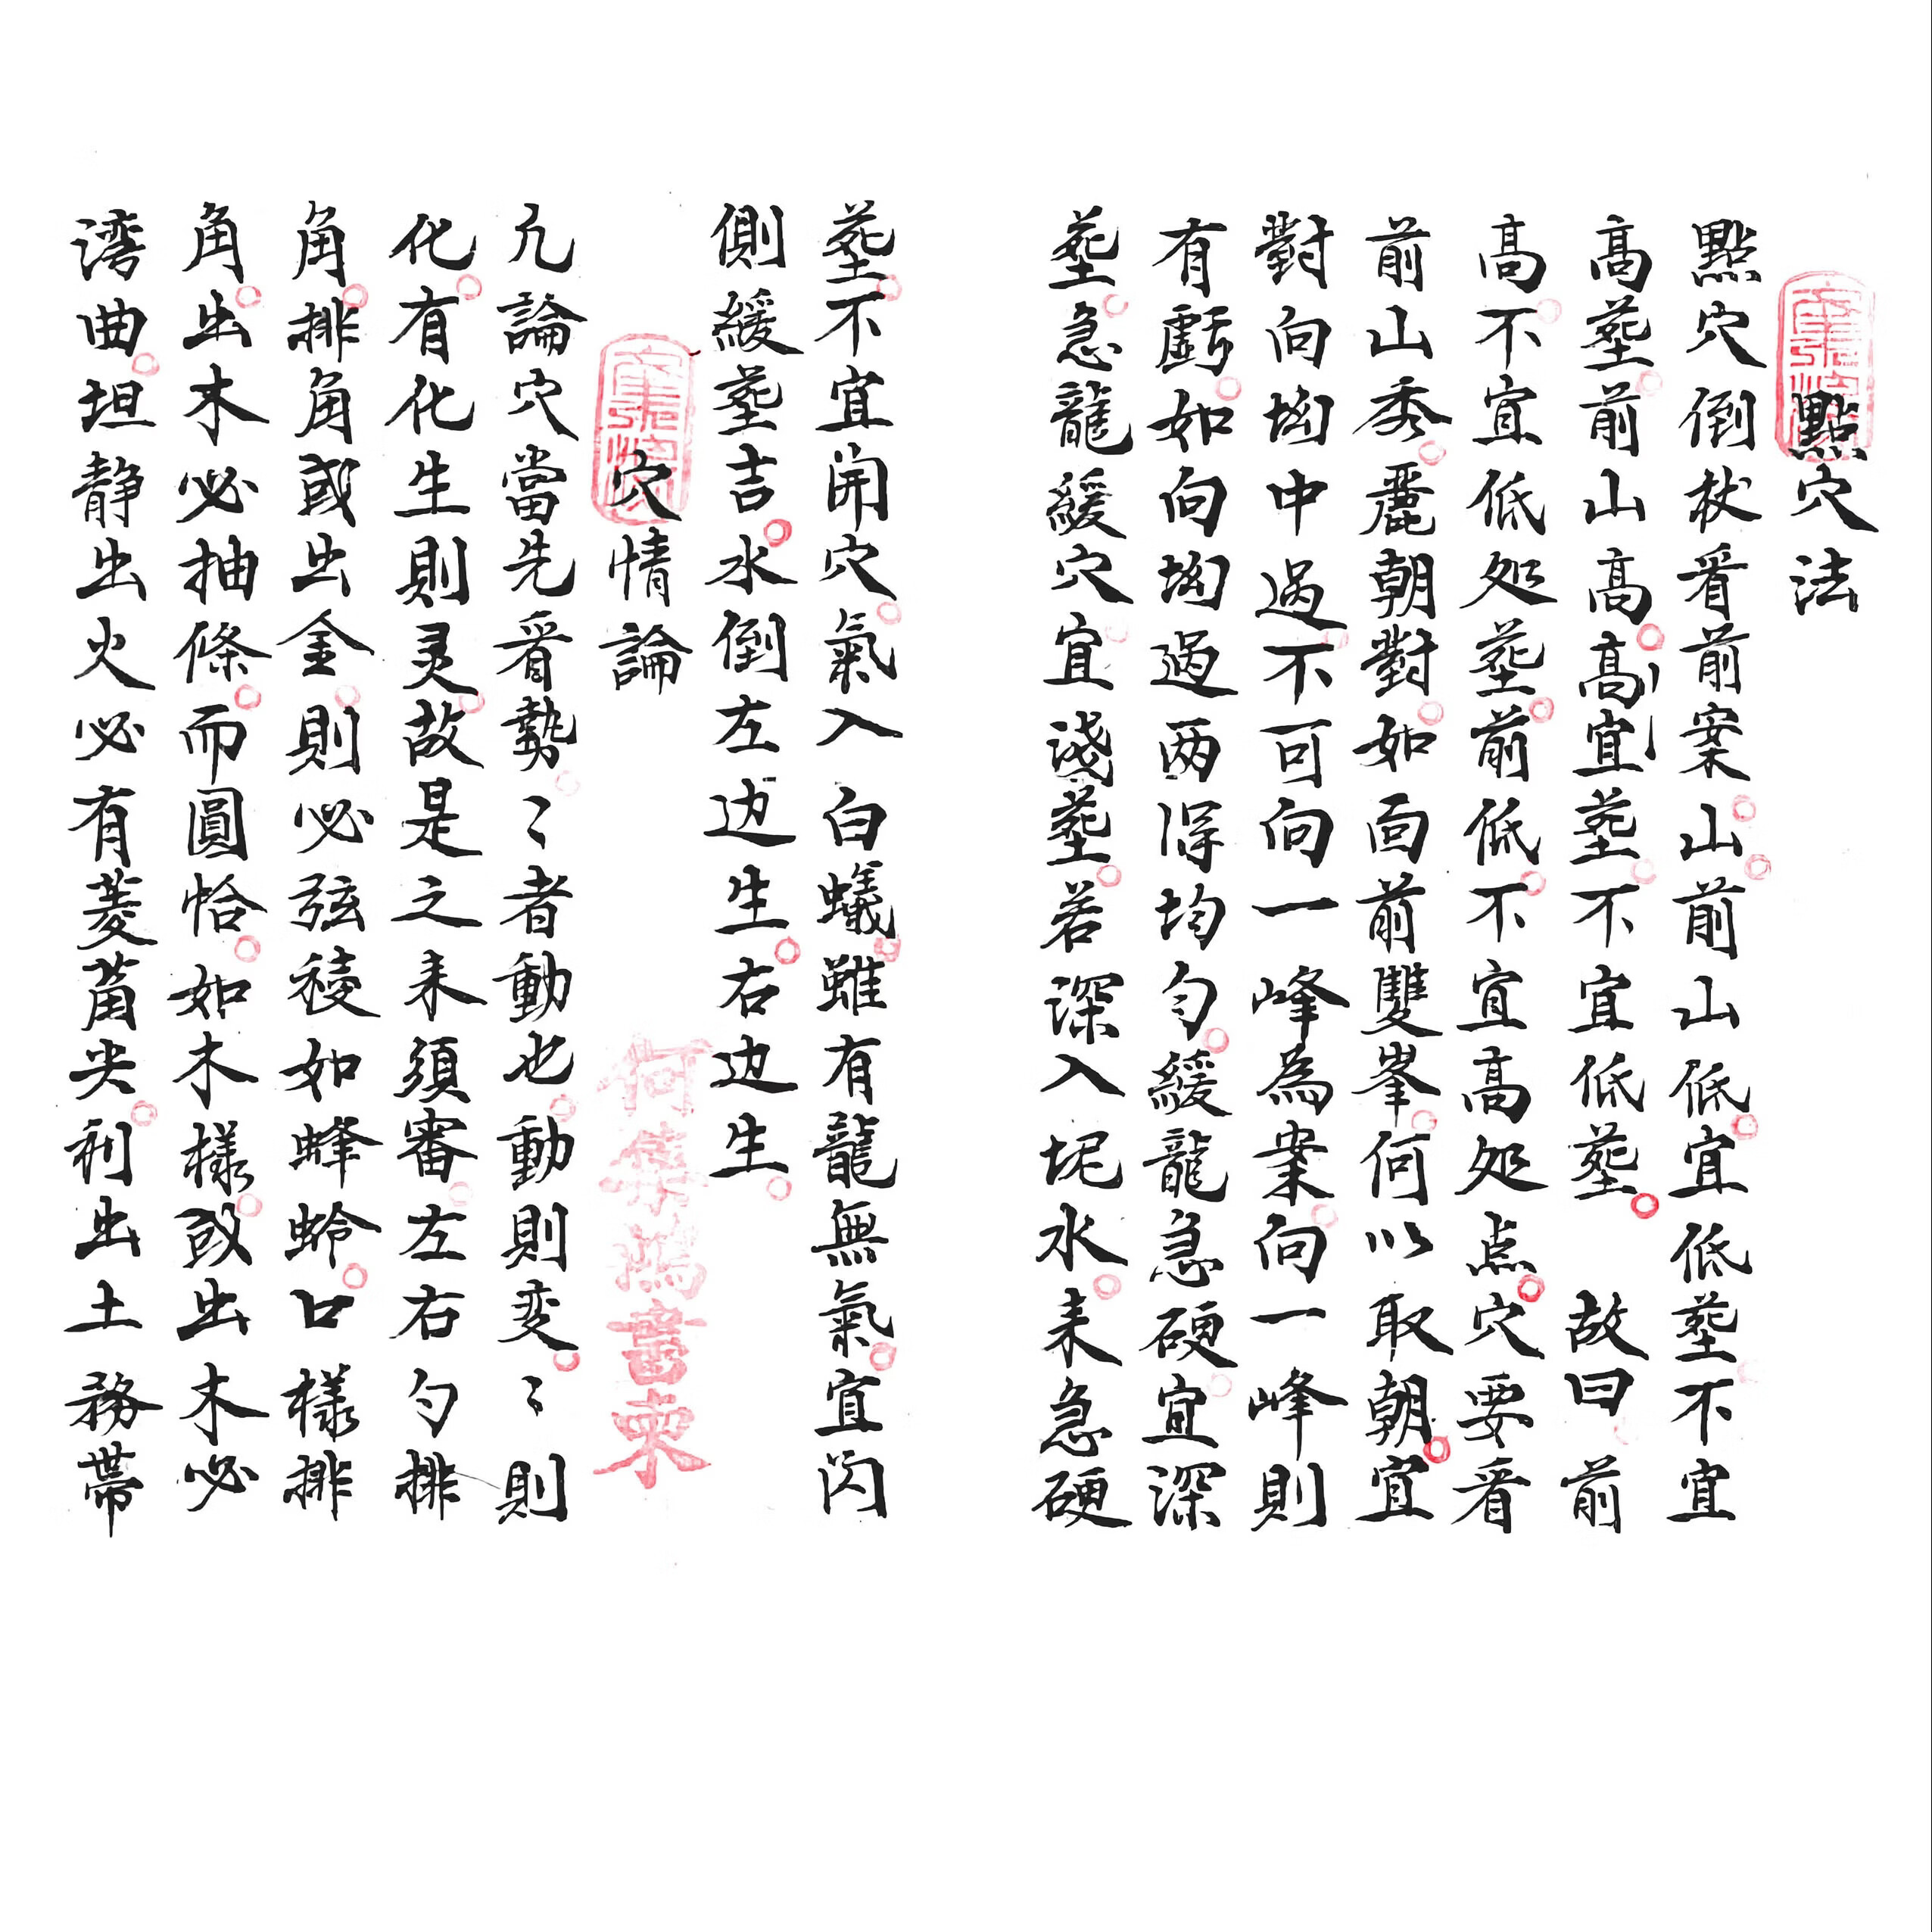 點穴法
點穴倒杖看前案山前山低宜低塟不宜
高塟前山高高宜塟不宜低塟故曰前
高不宜低処塟前低不宜高処点穴要看
前山秀麗朝對如面前雙峯何以取朝宜
對向坳中過不可向一峰為案向一峰則
有虧如向坳過两得均匀緩龍急硬宜深
塟急龍緩穴宜淺塟若深入坭水来急硬
塟不宜開穴氣入白蟻雖有龍無氣宜閃
側緩塟吉水倒左边生右边生
穴情論
何集鴻書柬
凢論穴當先看勢〻者動也動則変〻則
化有化生則灵故是之来須審左右勺排
角排角或出金則必弦稜如蜂蛉口樣排
角出木必抽條而圓恰如木樣或出木必
湾曲坦静出火必有菱角尖利出土務帶